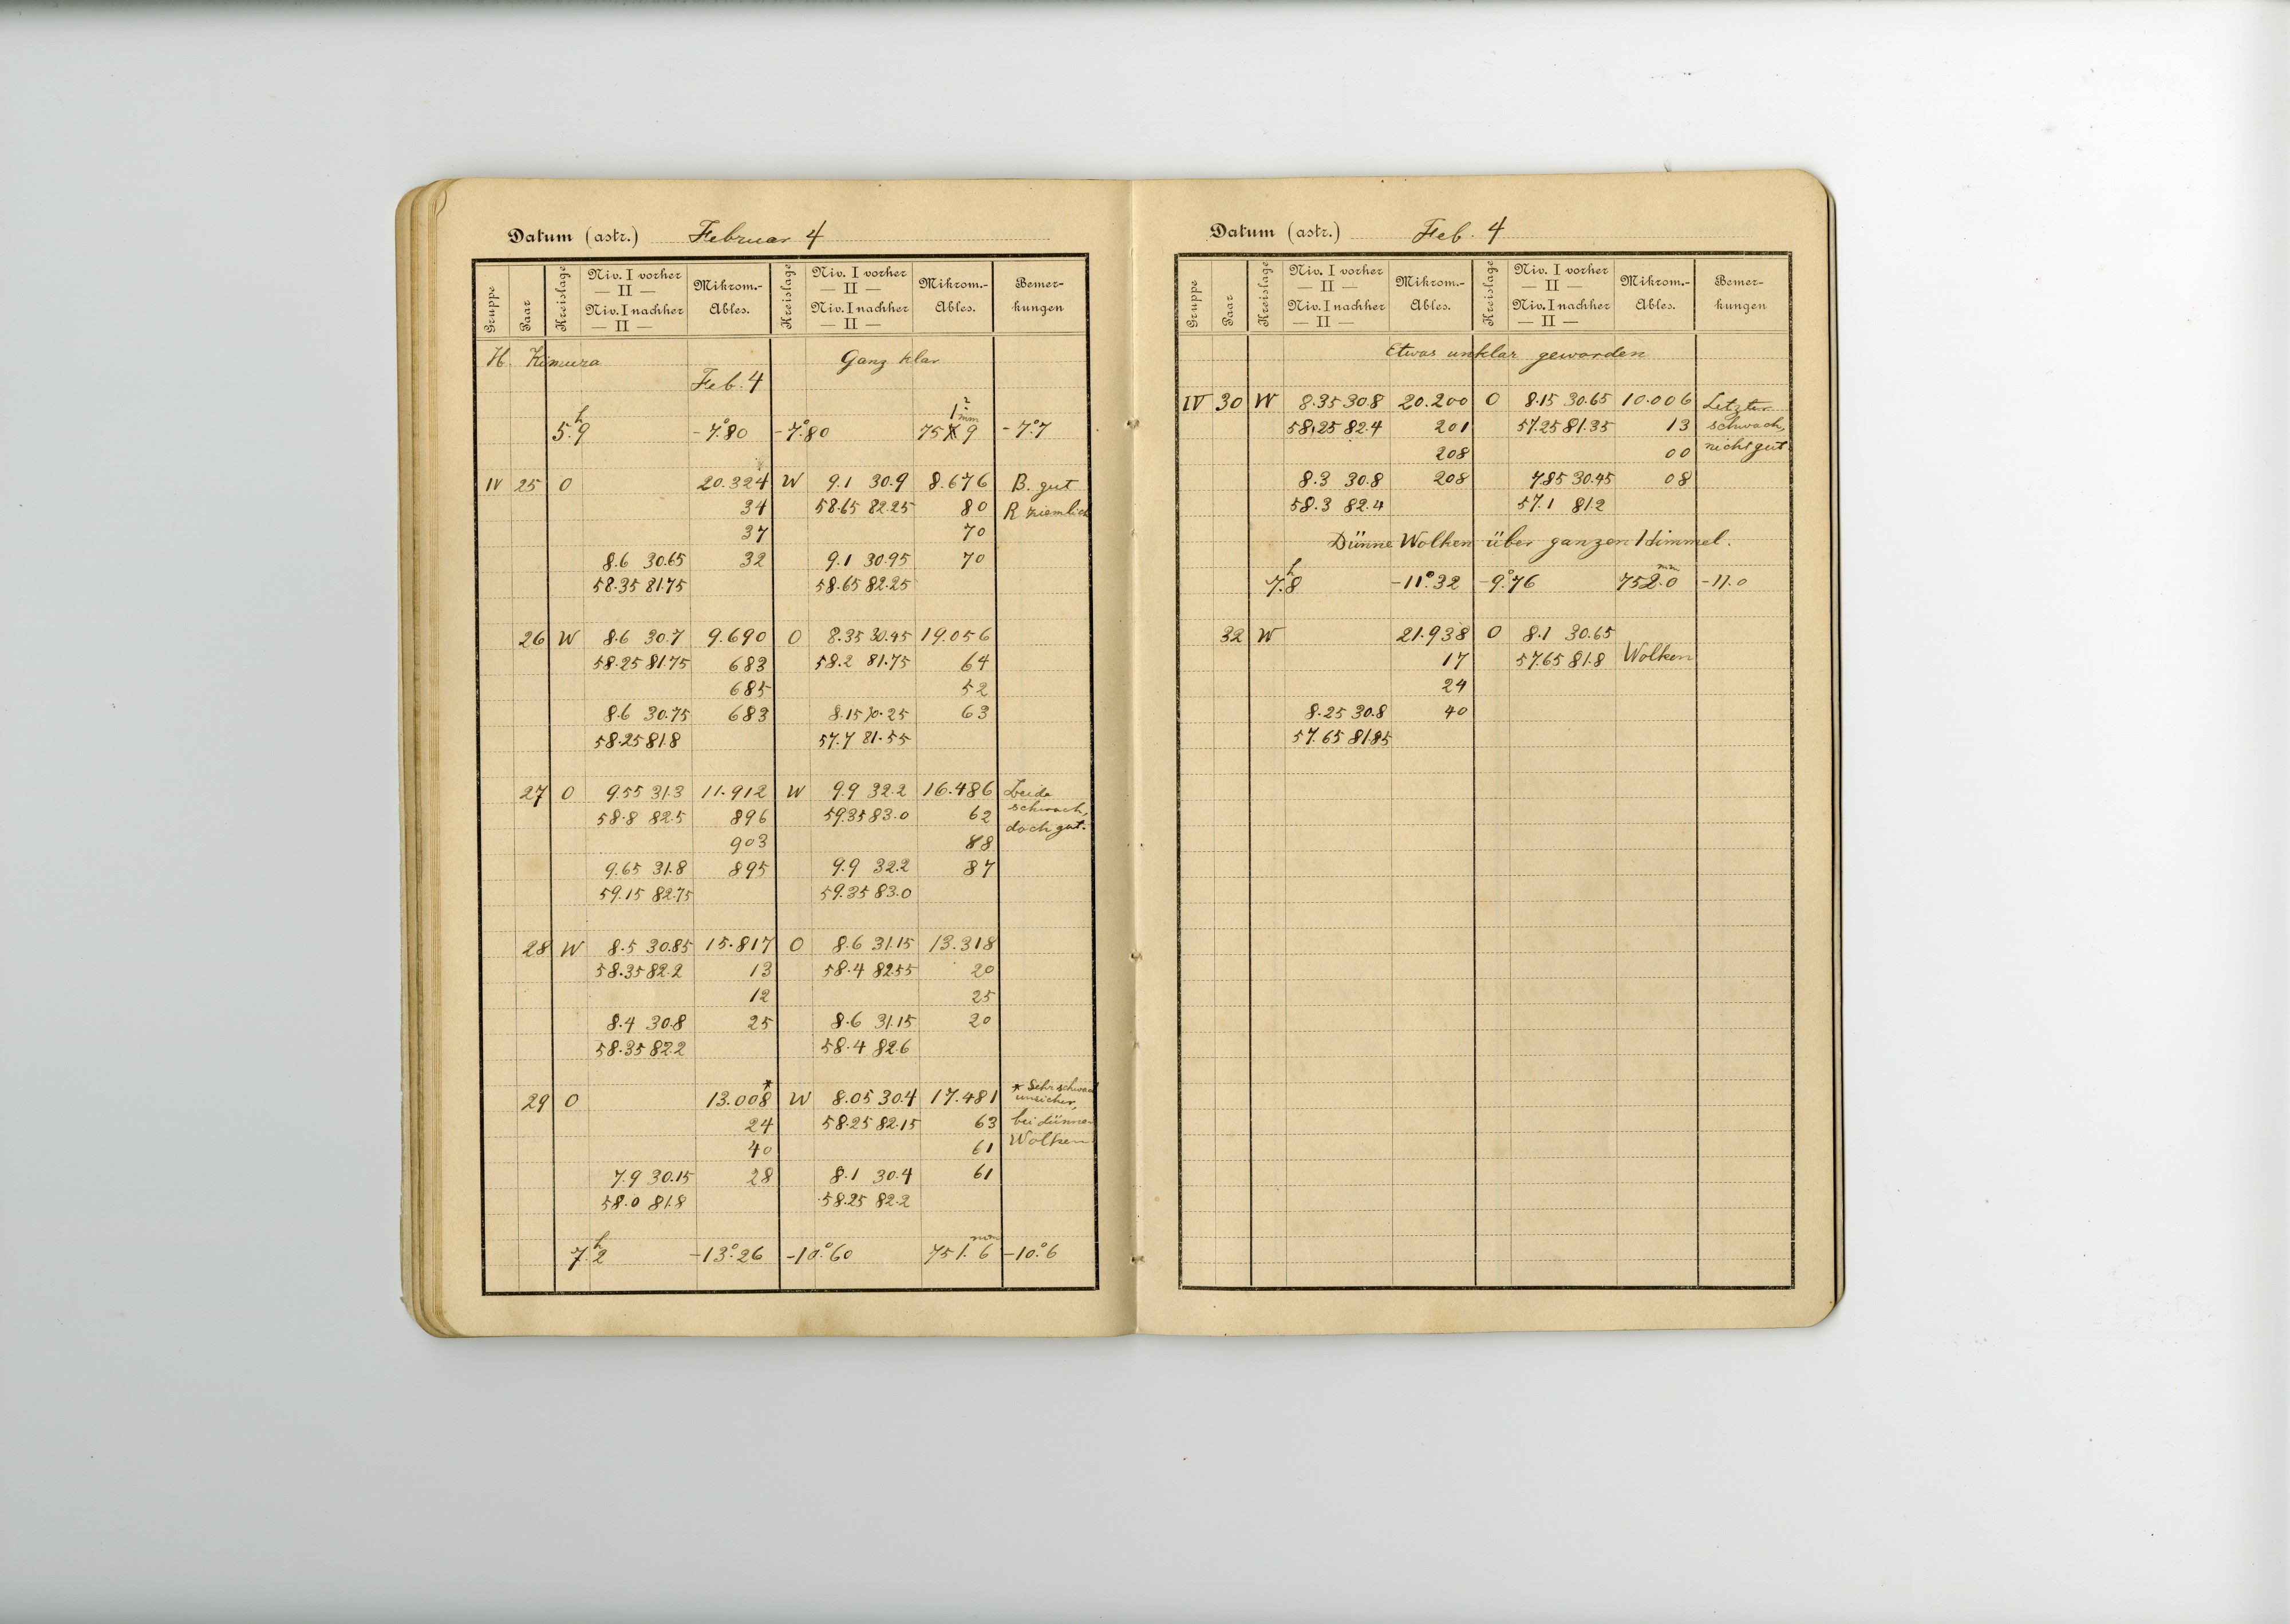 Datum (astr.) Februar 4
Gruppe Paar Kreislage Niv. I vorher Mikrom.- Kreislage Niv. I vorher Mikrom.- Bemer-
— II — — II —
Niv. I nachher Ables. Niv. I nachher Ables. kungen
— II — — II —
H. Kimura Ganz klar
Feb. 4
5.h9 -7.°80 -7.°80 751.mm9 -7.°7
IV 25 O 20.324 W 9.1 30.9 8.676 B. gut
34 58.65 82.25 80 R ziemlich
37 70
8.6 30.65 32 9.1 30.95 70
58.35 81.75 58.65 82.25
26 W 8.6 30.7 9.690 O 8.35 30.45 19.056
58.25 81.75 683 58.2 81.75 64
685 52
8.6 30.75 683 8.15 30.25 63
58.25 81.8 57.7 81.55
27 O 9.55 31.3 11.912 W 9.9 32.2 16.486 Beide
58.8 82.5 896 59.35 83.0 62 schwach,
903 88 doch gut.
9.65 31.8 895 9.9 32.2 87
59.15 82.75 59.35 83.0
28 W 8.5 30.85 15.817 O 8.6 31.15 13.318
58.35 82.2 13 58.4 82.55 20
12 25
8.4 30.8 25 8.6 31.15 20
58.35 82.2 58.4 82.6
29 O 13.008* W 8.05 30.4 17.481 * Sehr schwach
unsicher,
24 58.25 82.15 63 bei dünnen
40 61 Wolken
7.9 30.15 28 8.1 30.4 61
58.0 81.8 58.25 82.2
7.h2 -13.°26 -10.°60 751.mm6 -10.°6
Datum (astr.) Feb. 4
Gruppe Paar Kreislage Niv. I vorher Mikrom.- Kreislage Niv. I vorher Mikrom.- Bemer-
— II — — II —
Niv. I nachher Ables. Niv. I nachher Ables. kungen
— II — — II —
Etwas unklar geworden
IV 30 W 8.35 30.8 20.200 O 8.15 30.65 10.006 Letzter
58.25 82.4 201 57.25 81.35 13 schwach,
208 00 nicht gut.
8.3 30.8 208 7.85 30.45 08
58.3 82.4 57.1 81.2
Dünne Wolken über ganzen Himmel.
7.h8 -11.°32 -9.°76 752.mm0 -11.0
32 W 21.938 O 8.1 30.65
17 57.65 81.8 Wolken
24
8.25 30.8 40
57.65 81.85